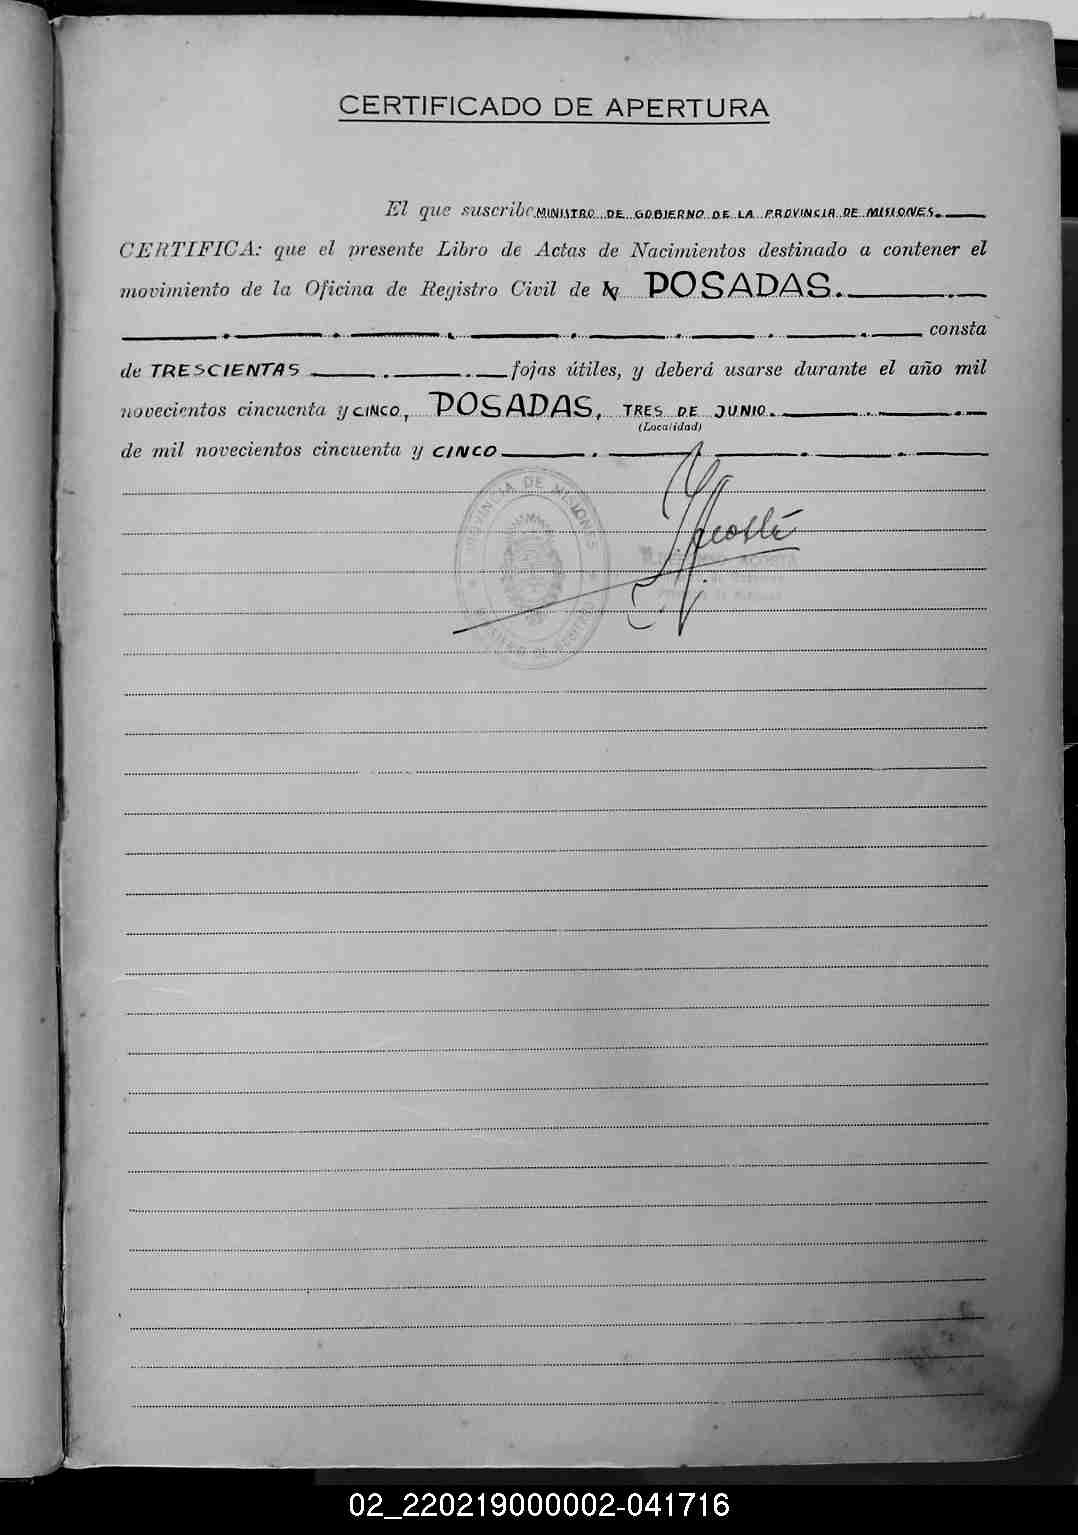 CERTIFICADO DE APERTURA
El que suscribe MINISTRO DE GOBIERNO DE LA PROVINCIA DE MISIONES.
CERTIFICA: que el presente Libro de Actas de Nacimientos destinado a contener el
movimiento de la Oficina de Registro Civil de POSADAS.
consta
de TRESCIENTAS fojas útiles, y deberá usarse durante el año mil
novecientos cincuenta y CINCO, POSADAS, TRES DE JUNIO.
(Localidad)
de mil novecientos cincuenta y CINCO
PROVINCIA DE MISIONES
02_220219000002-041716